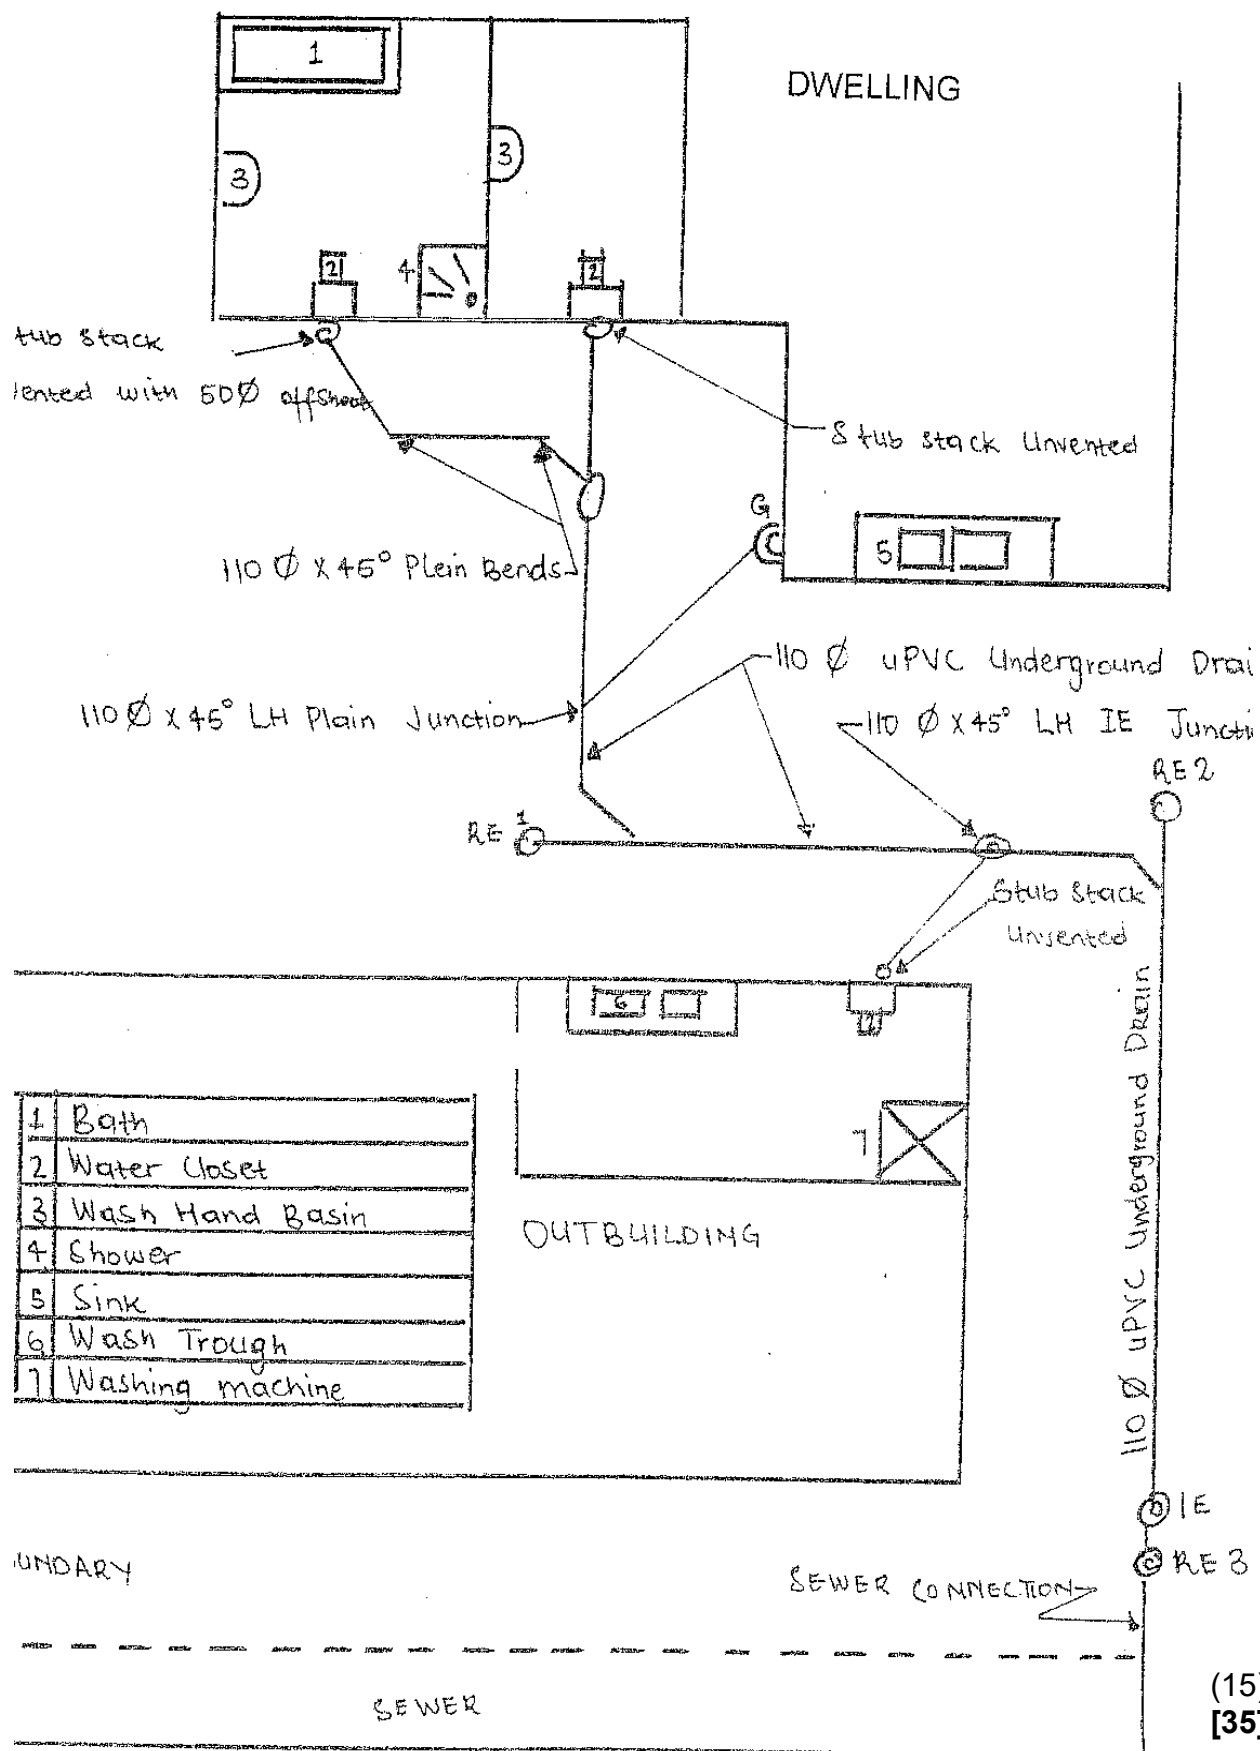 1
DWELLING
3
3
2
4
2
tub Stack
ented with 50Ø offshoot
Stub stack Unvented
G
5
110 Ø X 45° Plein Bends
110 Ø uPVC Underground Drai
110 Ø X 45° LH Plain Junction
110 Ø X 45° LH IE Juncti
RE 2
RE 1
Stub Stack
Unvented
6
2
110 Ø uPVC Underground Drain
1 Bath
2 Water Closet
3 Wash Hand Basin
4 Shower
5 Sink
6 Wash Trough
7 Washing machine
7
OUTBUILDING
IE
RE 3
UNDARY
SEWER CONNECTION
SEWER
(15)
[35]